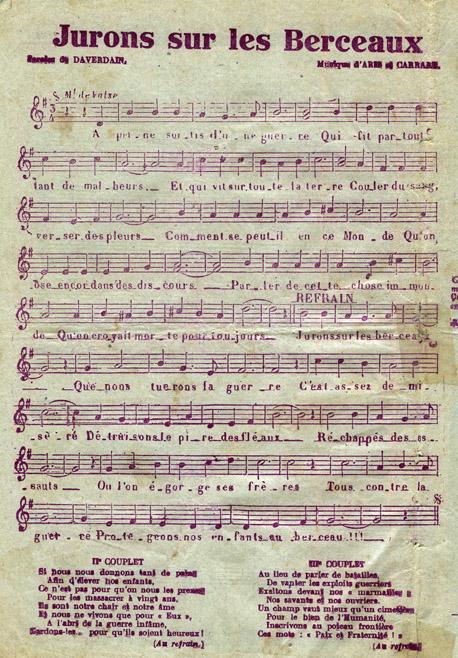 Jurons sur les Berceaux
Paroles de DAVERDAIN, Musique d'ARIS et CARRARE.
Mt de Valse
A pei-ne sor-tis d'u-ne guer-re Qui fit par-tout
tant de mal-heurs. Et qui vit sur tou-te la ter-re Couler du sang,
ver-ser des pleurs Com-ment se peut-il en ce Mon-de Qu'on
ose encor dans des dis-cours Par-ler de cet-te chose im-mon-
REFRAIN
de Qu'on croyait mor-te pour tou-jours Jurons sur les berceaux
Que nous tuerons la guer-re C'est as-sez de mi-
sè-re Dé-trui-sons le pi-re des flé-aux Ré-chappés des as-
sauts Où l'on é-gor-ge ses frè-res Tous con-tre la
guer-re Pro-té-geons nos en-fants au ber-ceau!!!
IIe COUPLET
Si nous nous donnons tant de peine
Afin d'élever nos enfants,
Ce n'est pas pour qu'on nous les prenne
Pour les massacrer à vingt ans,
Ils sont notre chair et notre âme
Et nous ne vivons que pour « Eux »,
A l'abri de la guerre infâme,
Gardons-les... pour qu'ils soient heureux!
(Au refrain.)
IIIe COUPLET
Au lieu de parler de batailles,
De vanter les exploits guerriers
Exaltons devant nos « marmailles »
Nos savants et nos ouvriers.
Un champ vaut mieux qu'un cimetière
Pour le bien de l'Humanité,
Inscrivons au poteau frontière
Ces mots : « Paix et Fraternité ! »
(Au refrain.)